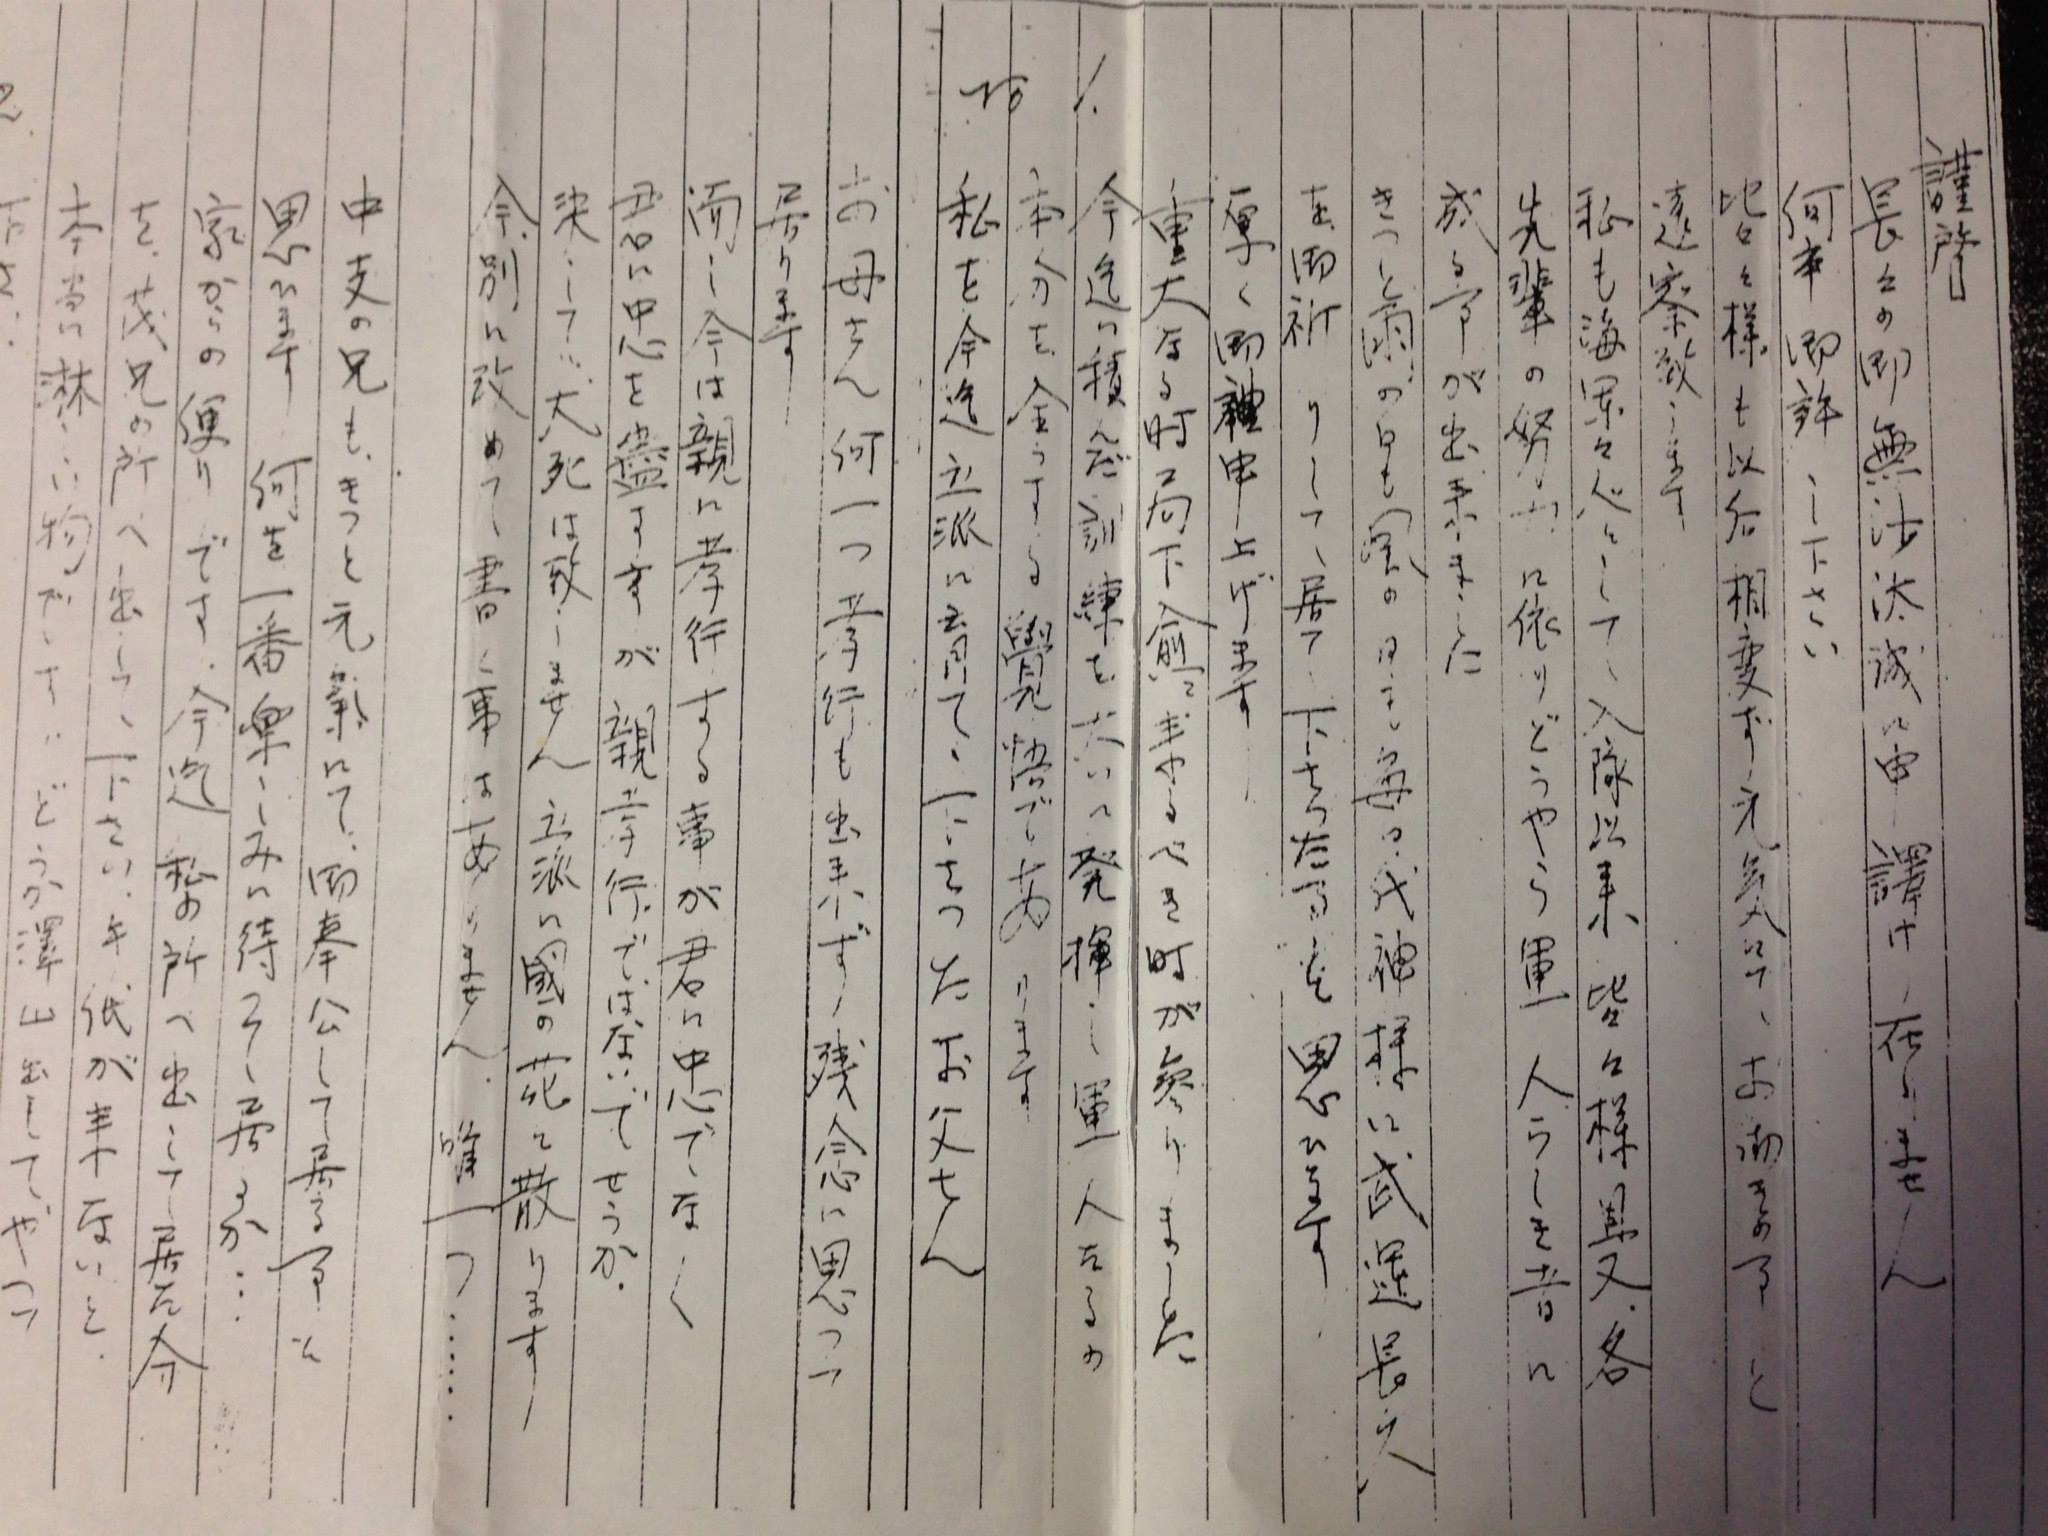 謹啓
長々の御無沙汰誠に申し譯け在りません
何卒御許し下さい
皆々様も以后相変ず元気にて、お働きの事と
遠察致します
私も海軍々人として入隊以来皆々様単又、各
先輩の努力に依りどうやら軍人らしき者に
成る事が出来ました
きっと雨の日も風の日も毎日氏神様に武運長久
を御祈りして居て下さった事を思ひます
厚く御禮申上げます
重大なる時局下愈々来るべき時が参りました
今迄に積んだ訓練を大いに発揮し軍人たるの
本分を全うする覺悟であります
私を今迄立派に育てて下さったお父さん
お母さん何一つ孝行も出来ず残念に思って
居ります
而し今は親に孝行する事が君に忠でなく
君に忠を盡すすが親孝行ではないでせうか
決して犬死は致しません 立派に國の花と散ります
今、別に改めて書く事はありません、唯一つ……
中支の兄も、きっと元氣にて、御奉公して居る事と
思ひます 何を一番楽しみに待って居るか…
家からの便りです、今迄私の所へ出して居た分
を、茂兄の所へ出して下さい、手紙が来ないと、
本当に淋しい物です、どうか澤山出してやって
下さい